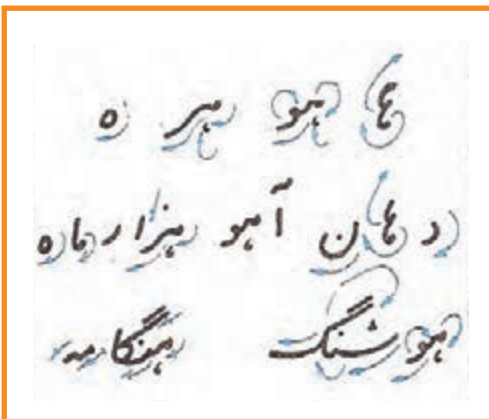 ها هو هر ه
دهان آهو هزار ماه
هوشنگ هنگامه